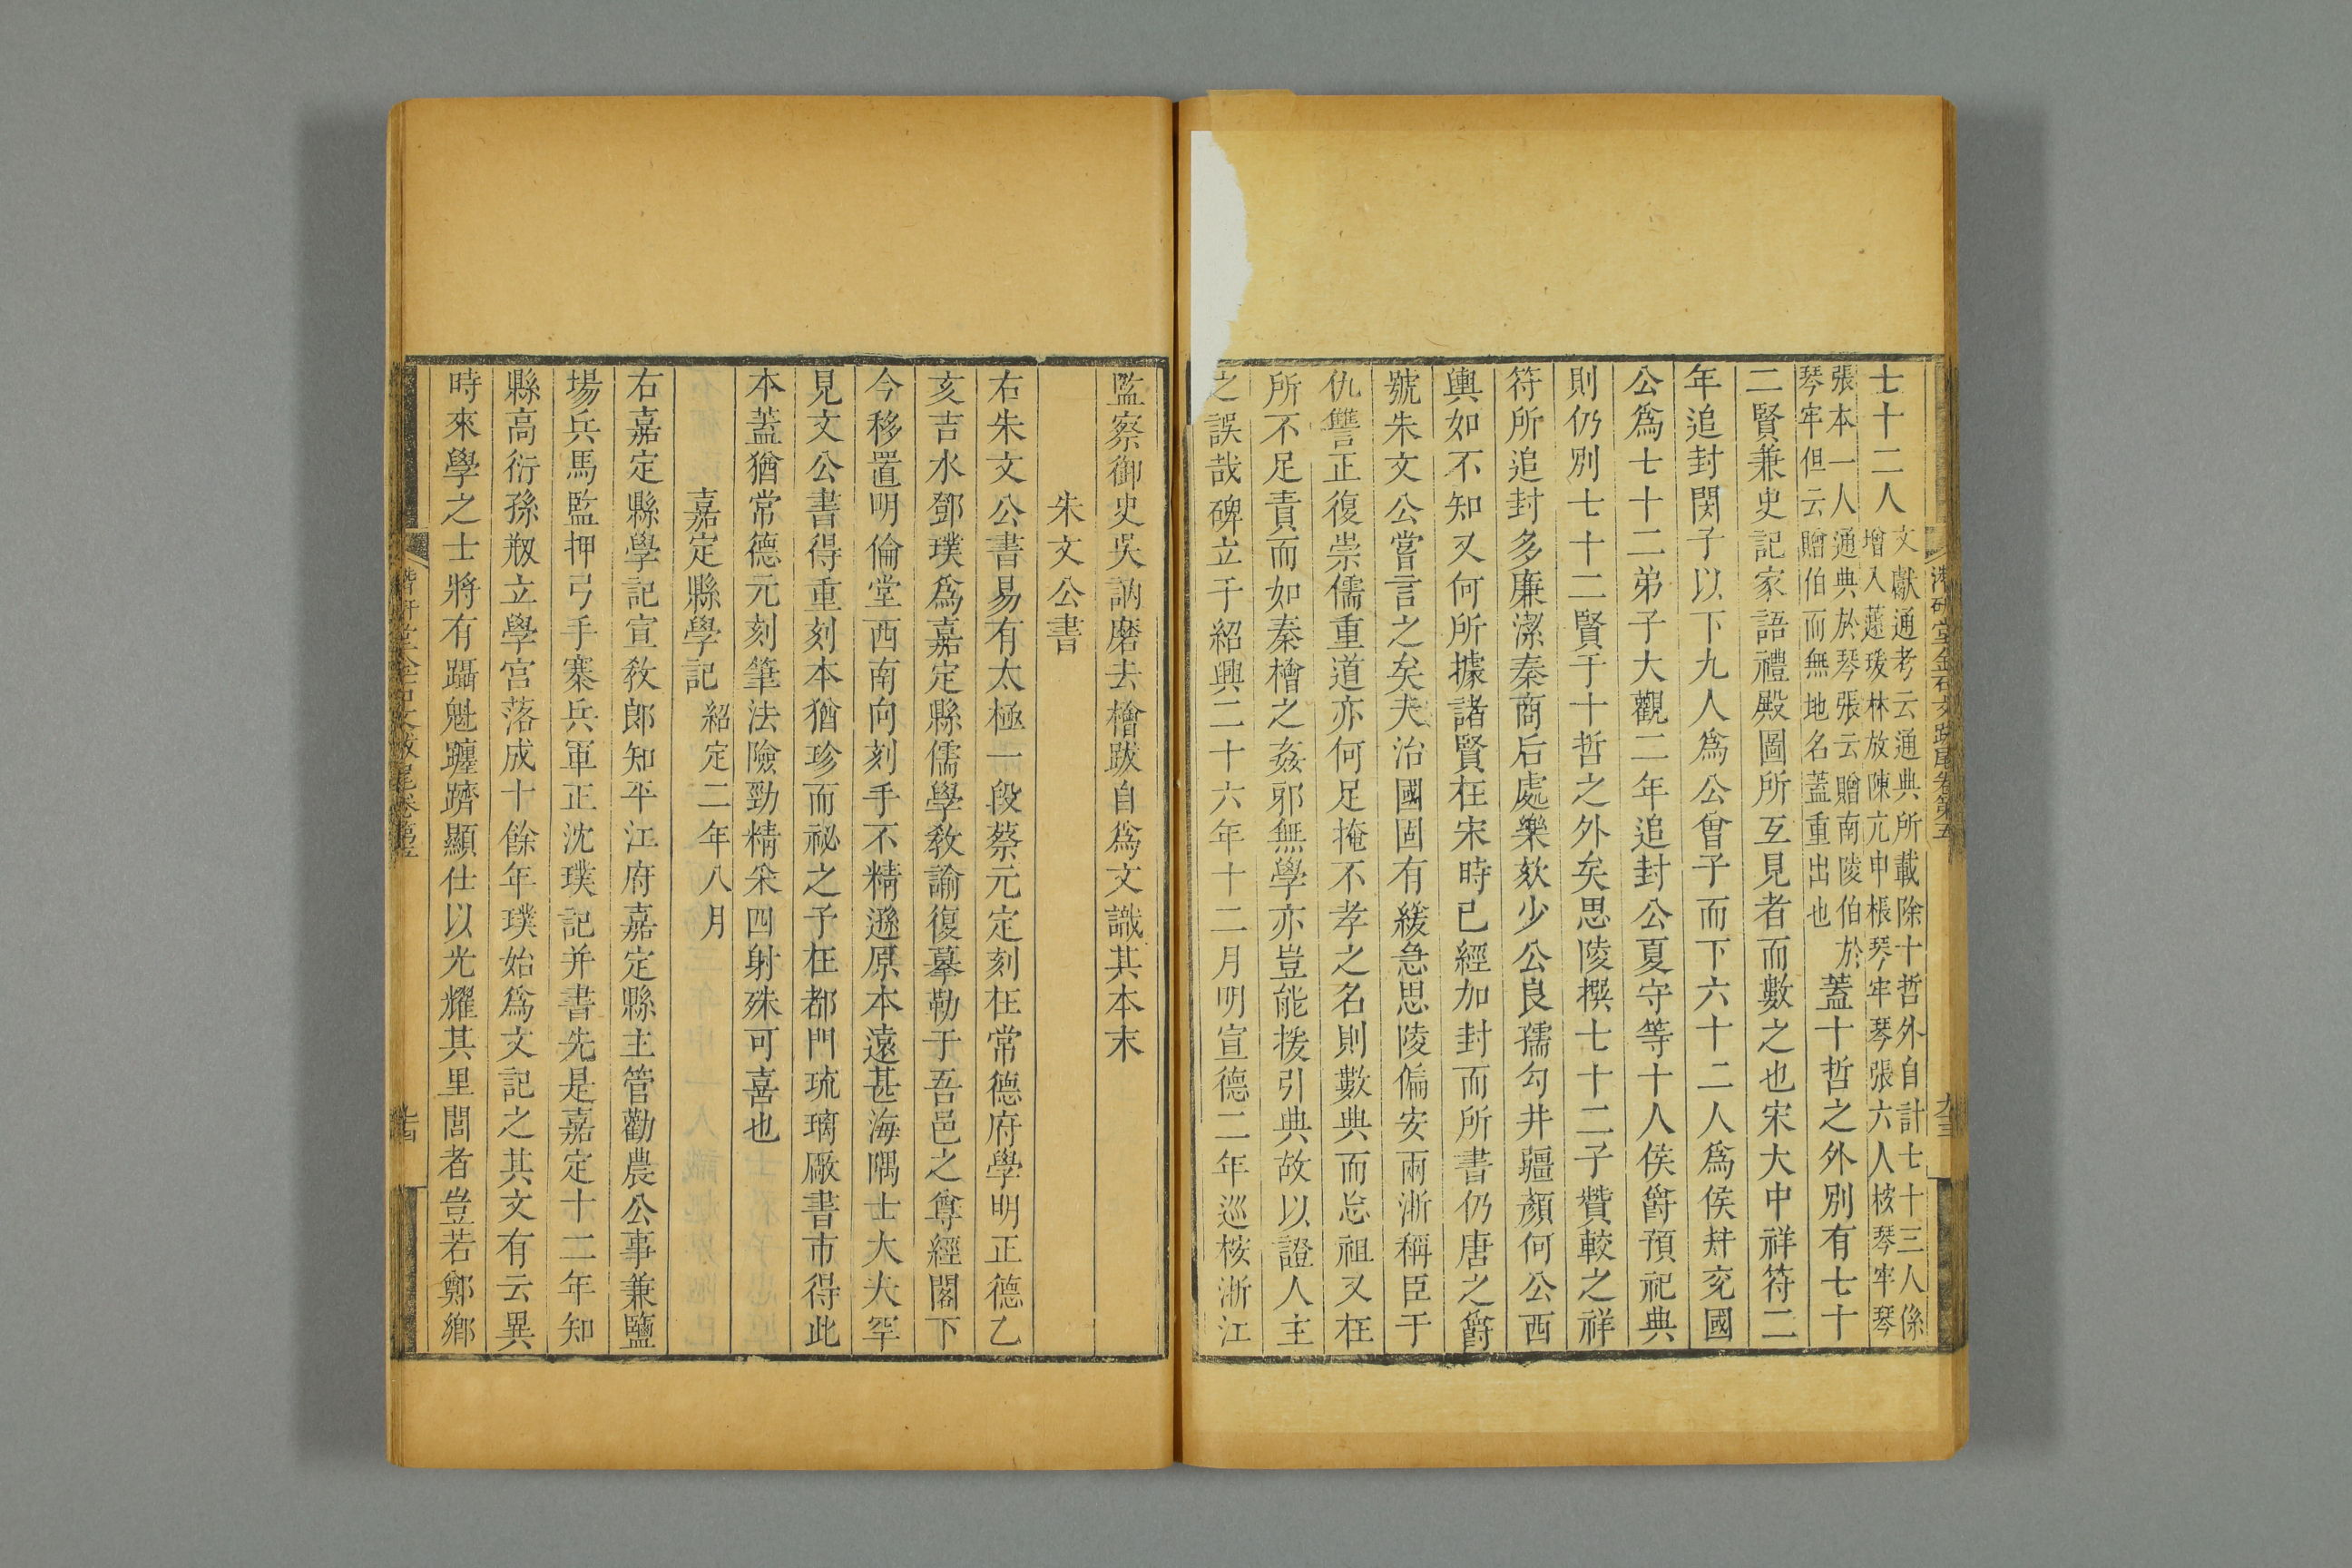 七十二人文獻通考云通典所載除十哲外自計七十三人係
增入蘧瑗林放陳亢申棖琴牢琴張六人按琴牢琴
張本一人通典於琴張云贈南陵伯於
琴牢但云贈伯而無地名蓋重出也蓋十哲之外別有七十
二賢兼史記家語禮殿圖所互見者而數之也宋大中祥符二
年追封閔子以下九人爲公曾子而下六十二人爲侯幷兖國
公爲七十二弟子大觀二年追封公夏守等十人侯爵預祀典
則仍別七十二賢于十哲之外矣思陵撰七十二子贊較之祥
符所追封多廉潔秦商后處樂欬少公良孺勾井疆顏何公西
輿如不知又何所據諸賢在宋時已經加封而所書仍唐之爵
號朱文公嘗言之矣夫治國固有緩急思陵偏安兩浙稱臣于
仇讐正復崇儒重道亦何足掩不孝之名則數典而忘祖又在
所不足責而如秦檜之姦邪無學亦豈能援引典故以證人主
之誤哉碑立于紹興二十六年十二月明宣德二年巡按浙江
監察御史吳訥磨去檜跋自爲文識其本末
朱文公書
右朱文公書易有太極一段蔡元定刻在常德府學明正德乙
亥吉水鄧璞爲嘉定縣儒學敎諭復摹勒于吾邑之尊經閣下
今移置明倫堂西南向刻手不精遜原本遠甚海隅士大夫罕
見文公書得重刻本猶珍而祕之予在都門琉璃厰書市得此
本蓋猶常德元刻筆法險勁精采四射殊可喜也
嘉定縣學記 紹定二年八月
右嘉定縣學記宣敎郎知平江府嘉定縣主管勸農公事兼鹽
場兵馬監押弓手寨兵軍正沈璞記并書先是嘉定十二年知
縣高衍孫剏立學宮落成十餘年璞始爲文記之其文有云異
時來學之士將有躡魁躔躋顯仕以光耀其里閭者豈若鄭鄉
潛研堂金石文跋尾卷第五